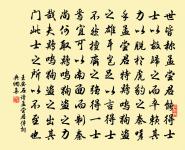 世皆称孟尝君能得士
士以故归之而卒赖其
力以脱于虎豹之秦嗟
乎孟尝君特鸡鸣狗盗
之雄耳岂足以言得士
不然擅齐之强得一士
焉宜可以南面而制秦
尚何取鸡鸣狗盗之力
哉夫鸡鸣狗盗之出其
门此士之所以不至也
王安石读孟尝君传